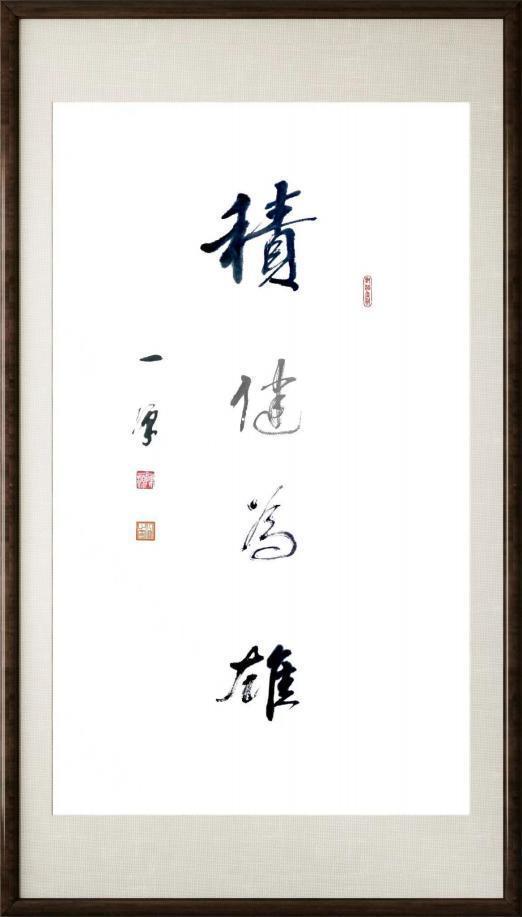 積健為雄
一